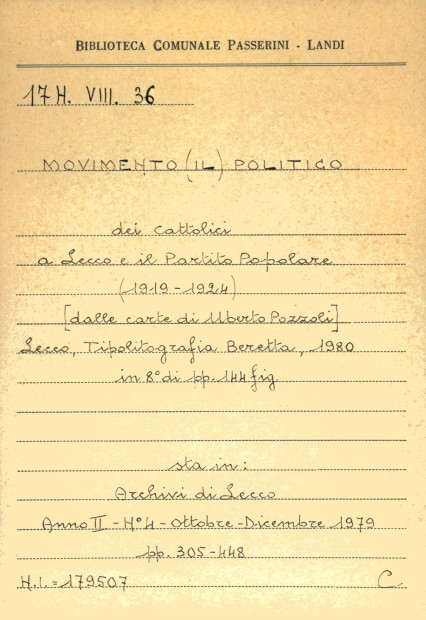 BIBLIOTECA COMUNALE PASSERINI - LANDI
17 H. VIII. 36
MOVIMENTO (IL) POLITICO
dei cattolici
a Lecco e il Partito Popolare
(1919-1924)
[dalle carte di Uberto Pozzoli]
Lecco, Tipolitografia Beretta, 1980
in 8° di pp. 144 fig.
sta in:
Archivi di Lecco
Anno II - N° 4 - Ottobre - Dicembre 1979
pp. 305-448
N.I. = 179507 C